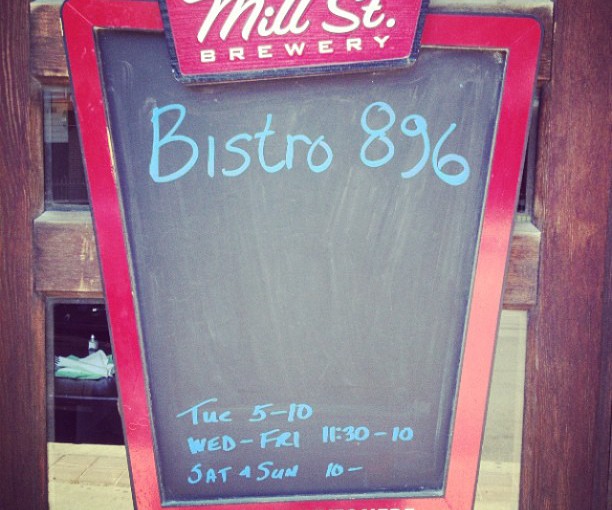 Mill St.
BREWERY
Bistro 896
Tue 5-10
WED-FRI 11:30-10
SAT & SUN 10-